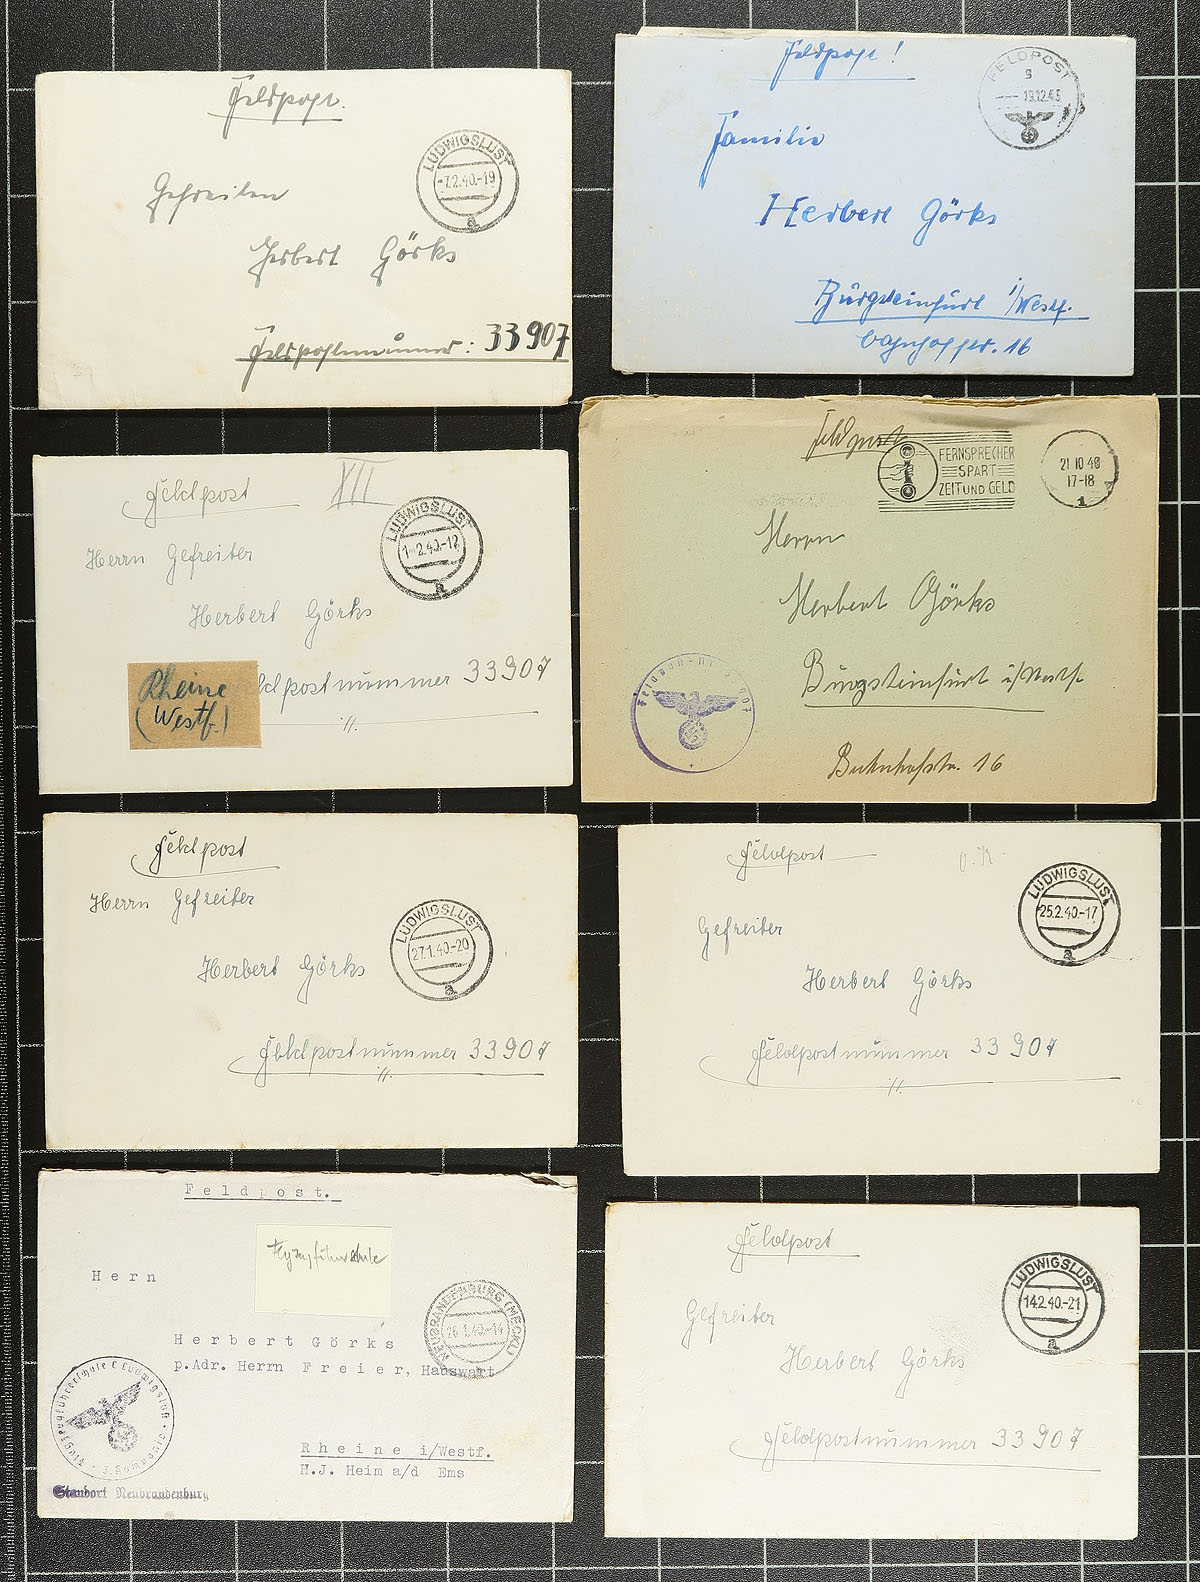 Feldpost.
LUDWIGSLUST
-7.2.40.-19
a
Gefreiten
Herbert Görks
Feldpostnummer: 33907
Feldpost!
FELDPOST
g
19.12.43
Familie
Herbert Görks
Burgsteinfurt i/Westf.
Bahnhofstr. 16
Feldpost
XII
LUDWIGSLUST
1-2.40.-12
a
Herrn Gefreiter
Herbert Görks
Feldpostnummer 33907
Rheine
(Westf.)
Feldpost
FERNSPRECHER
SPART
ZEIT UND GELD
21 10 40
17-18
1
Herrn
Herbert Görks
Burgsteinfurt i/Westf.
Bahnhofstr. 16
Feldpost
Herrn Gefreiter
LUDWIGSLUST
27.1.40.-20
a
Herbert Görks
Feldpostnummer 33907
Feldpost
LUDWIGSLUST
25.2.40.-17
a
Gefreiter
Herbert Görks
Feldpostnummer 33907
Feldpost.
Flugzeugführerschule
Hern
NEUBRANDENBURG (MECKL)
26.1.40.-14
Herbert Görks
p.Adr. Herrn Freier, Hauswart
Rheine i/Westf.
H.J. Heim a/d Ems
Flugzeugführerschule C Ludwigslust · 3. Kompanie
Standort Neubrandenburg
Feldpost
LUDWIGSLUST
14.2.40.-21
a
Gefreiter
Herbert Görks
Feldpostnummer 33907